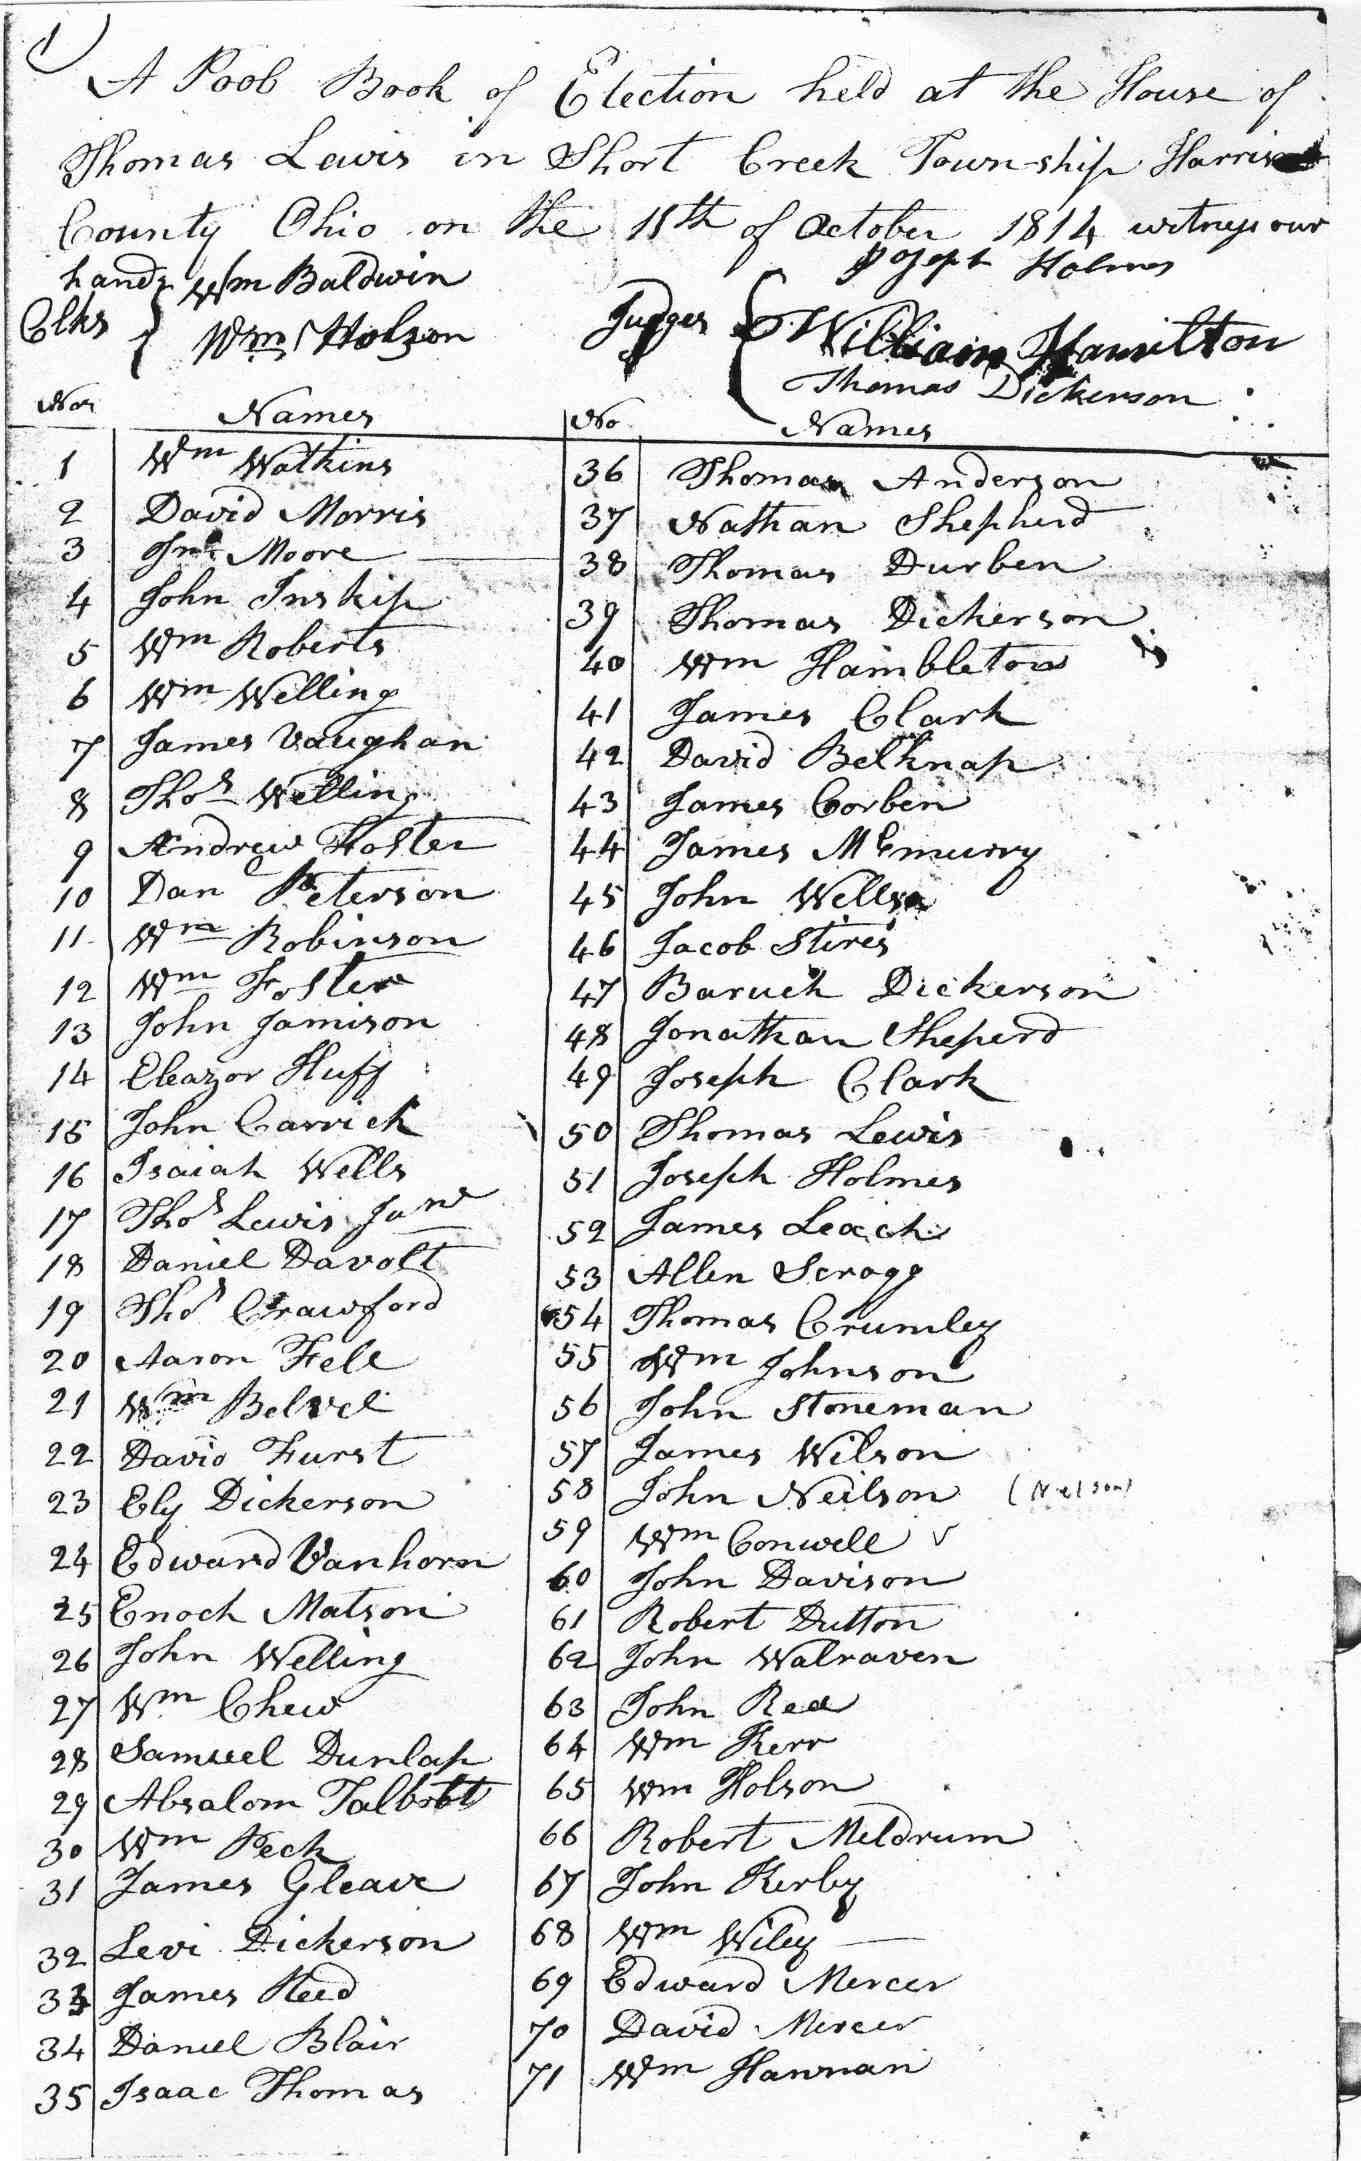 1)
A Poob Book of Election held at the House of
Thomas Lewis in Short Creek Town-ship Harrison
County Ohio on the 11th of October 1814 witness our
hands Wm Baldwin
Joseph Holmes
Clks Wm Holson
Judges William Hamilton
Thomas Dickerson
Nos Names
No Names
1 Wm Watkins
2 David Morris
3 Jno Moore
4 John Inskip
5 Wm Roberts
6 Wm Welling
7 James Vaughan
8 Thos Welling
9 Andrew Foster
10 Dan Peterson
11 Wm Robinson
12 Wm Foster
13 John Jamison
14 Eleazor Huff
15 John Carrick
16 Isaiah Wells
17 Thos Lewis Junr
18 Daniel Davolt
19 Thos Crawford
20 Aaron Fell
21 Wm Belvel
22 David Furst
23 Ely Dickerson
24 Edward Vanhorn
25 Enoch Matson
26 John Welling
27 Wm Chew
28 Samuel Dunlap
29 Absalom Talbott
30 Wm Peck
31 James Gleave
32 Levi Dickerson
33 James Reed
34 Daniel Blair
35 Isaac Thomas
36 Thomas Anderson
37 Nathan Shepherd
38 Thomas Durben
39 Thomas Dickerson
40 Wm Hambleton
41 James Clark
42 David Belknap
43 James Corben
44 James McMurry
45 John Wells
46 Jacob Stires
47 Baruch Dickerson
48 Jonathan Sheperd
49 Joseph Clark
50 Thomas Lewis
51 Joseph Holmes
52 James Leach
53 Allen Scrogg
54 Thomas Crumley
55 Wm Johnson
56 John Stoneman
57 James Wilson
58 John Neilson (Nelson)
59 Wm Conwell ✓
60 John Davison
61 Robert Dutton
62 John Walraven
63 John Rea
64 Wm Kerr
65 Wm Holson
66 Robert Meldrum
67 John Kerby
68 Wm Wiley
69 Edward Mercer
70 David Mercer
71 Wm Hannan